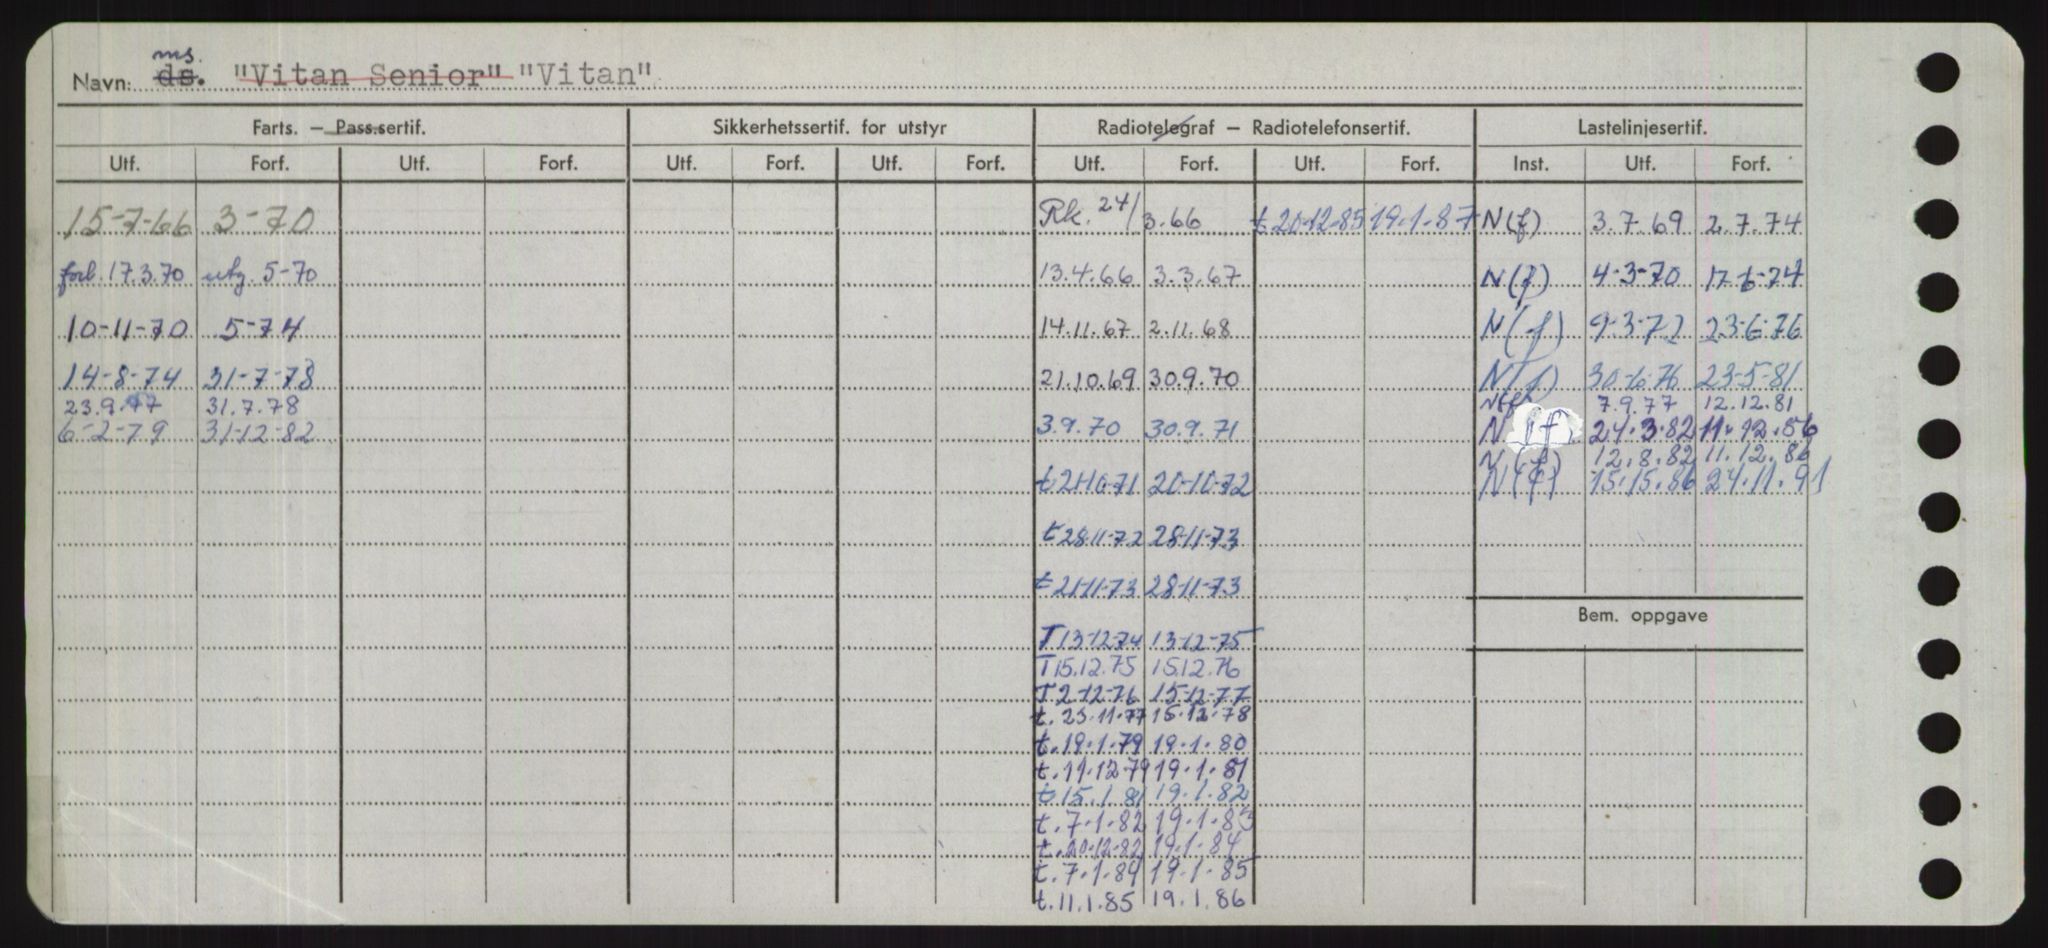 ms.
Navn: ds. "Vitan Senior" "Vitan"
Farts. — Pass.sertif. Sikkerhetssertif. for utstyr Radiotelegraf — Radiotelefonsertif. Lastelinjesertif.
Utf. Forf. Utf. Forf. Utf. Forf. Utf. Forf. Utf. Forf. Utf. Forf. Inst. Utf. Forf.
15-7-66 3-70 Rk. 24/3.66 t 20-12-85 19-1-87 N(f) 3.7.69 2.7.74
forl. 17.3.70 utg. 5-70 13.4.66 3.3.67 N(f) 4-3-70 17-6-74
10-11-70 5-74 14.11.67 2.11.68 N(f) 9-3-72 23-6-76
14-8-74 31-7-78 21.10.69 30.9.70 N(f) 30-6-76 23-5-81
23.9.77 31.7.78 N(f) 7.9.77 12.12.81
6-2-79 31-12-82 3.9.70 30.9.71 N(f) 24.3.82 11.12.86
N(f) 12.8.82 11.12.86
t 21-10-71 20-10-72 N(f) 15.15.86 24.11.91
t 28-11-72 28-11-73
t 21-11-73 28-11-73
Bem. oppgave
T 13-12-74 13-12-75
T 15.12.75 15.12.76
T 2-12-76 15-12-77
t. 23.11.77 15.12.78
t. 19.1.79 19.1.80
t. 11.12.79 19.1.81
t 15.1.81 19.1.82
t. 7.1.82 19.1.83
t. 20.12.82 19.1.84
t. 7.1.84 19.1.85
t. 11.1.85 19.1.86